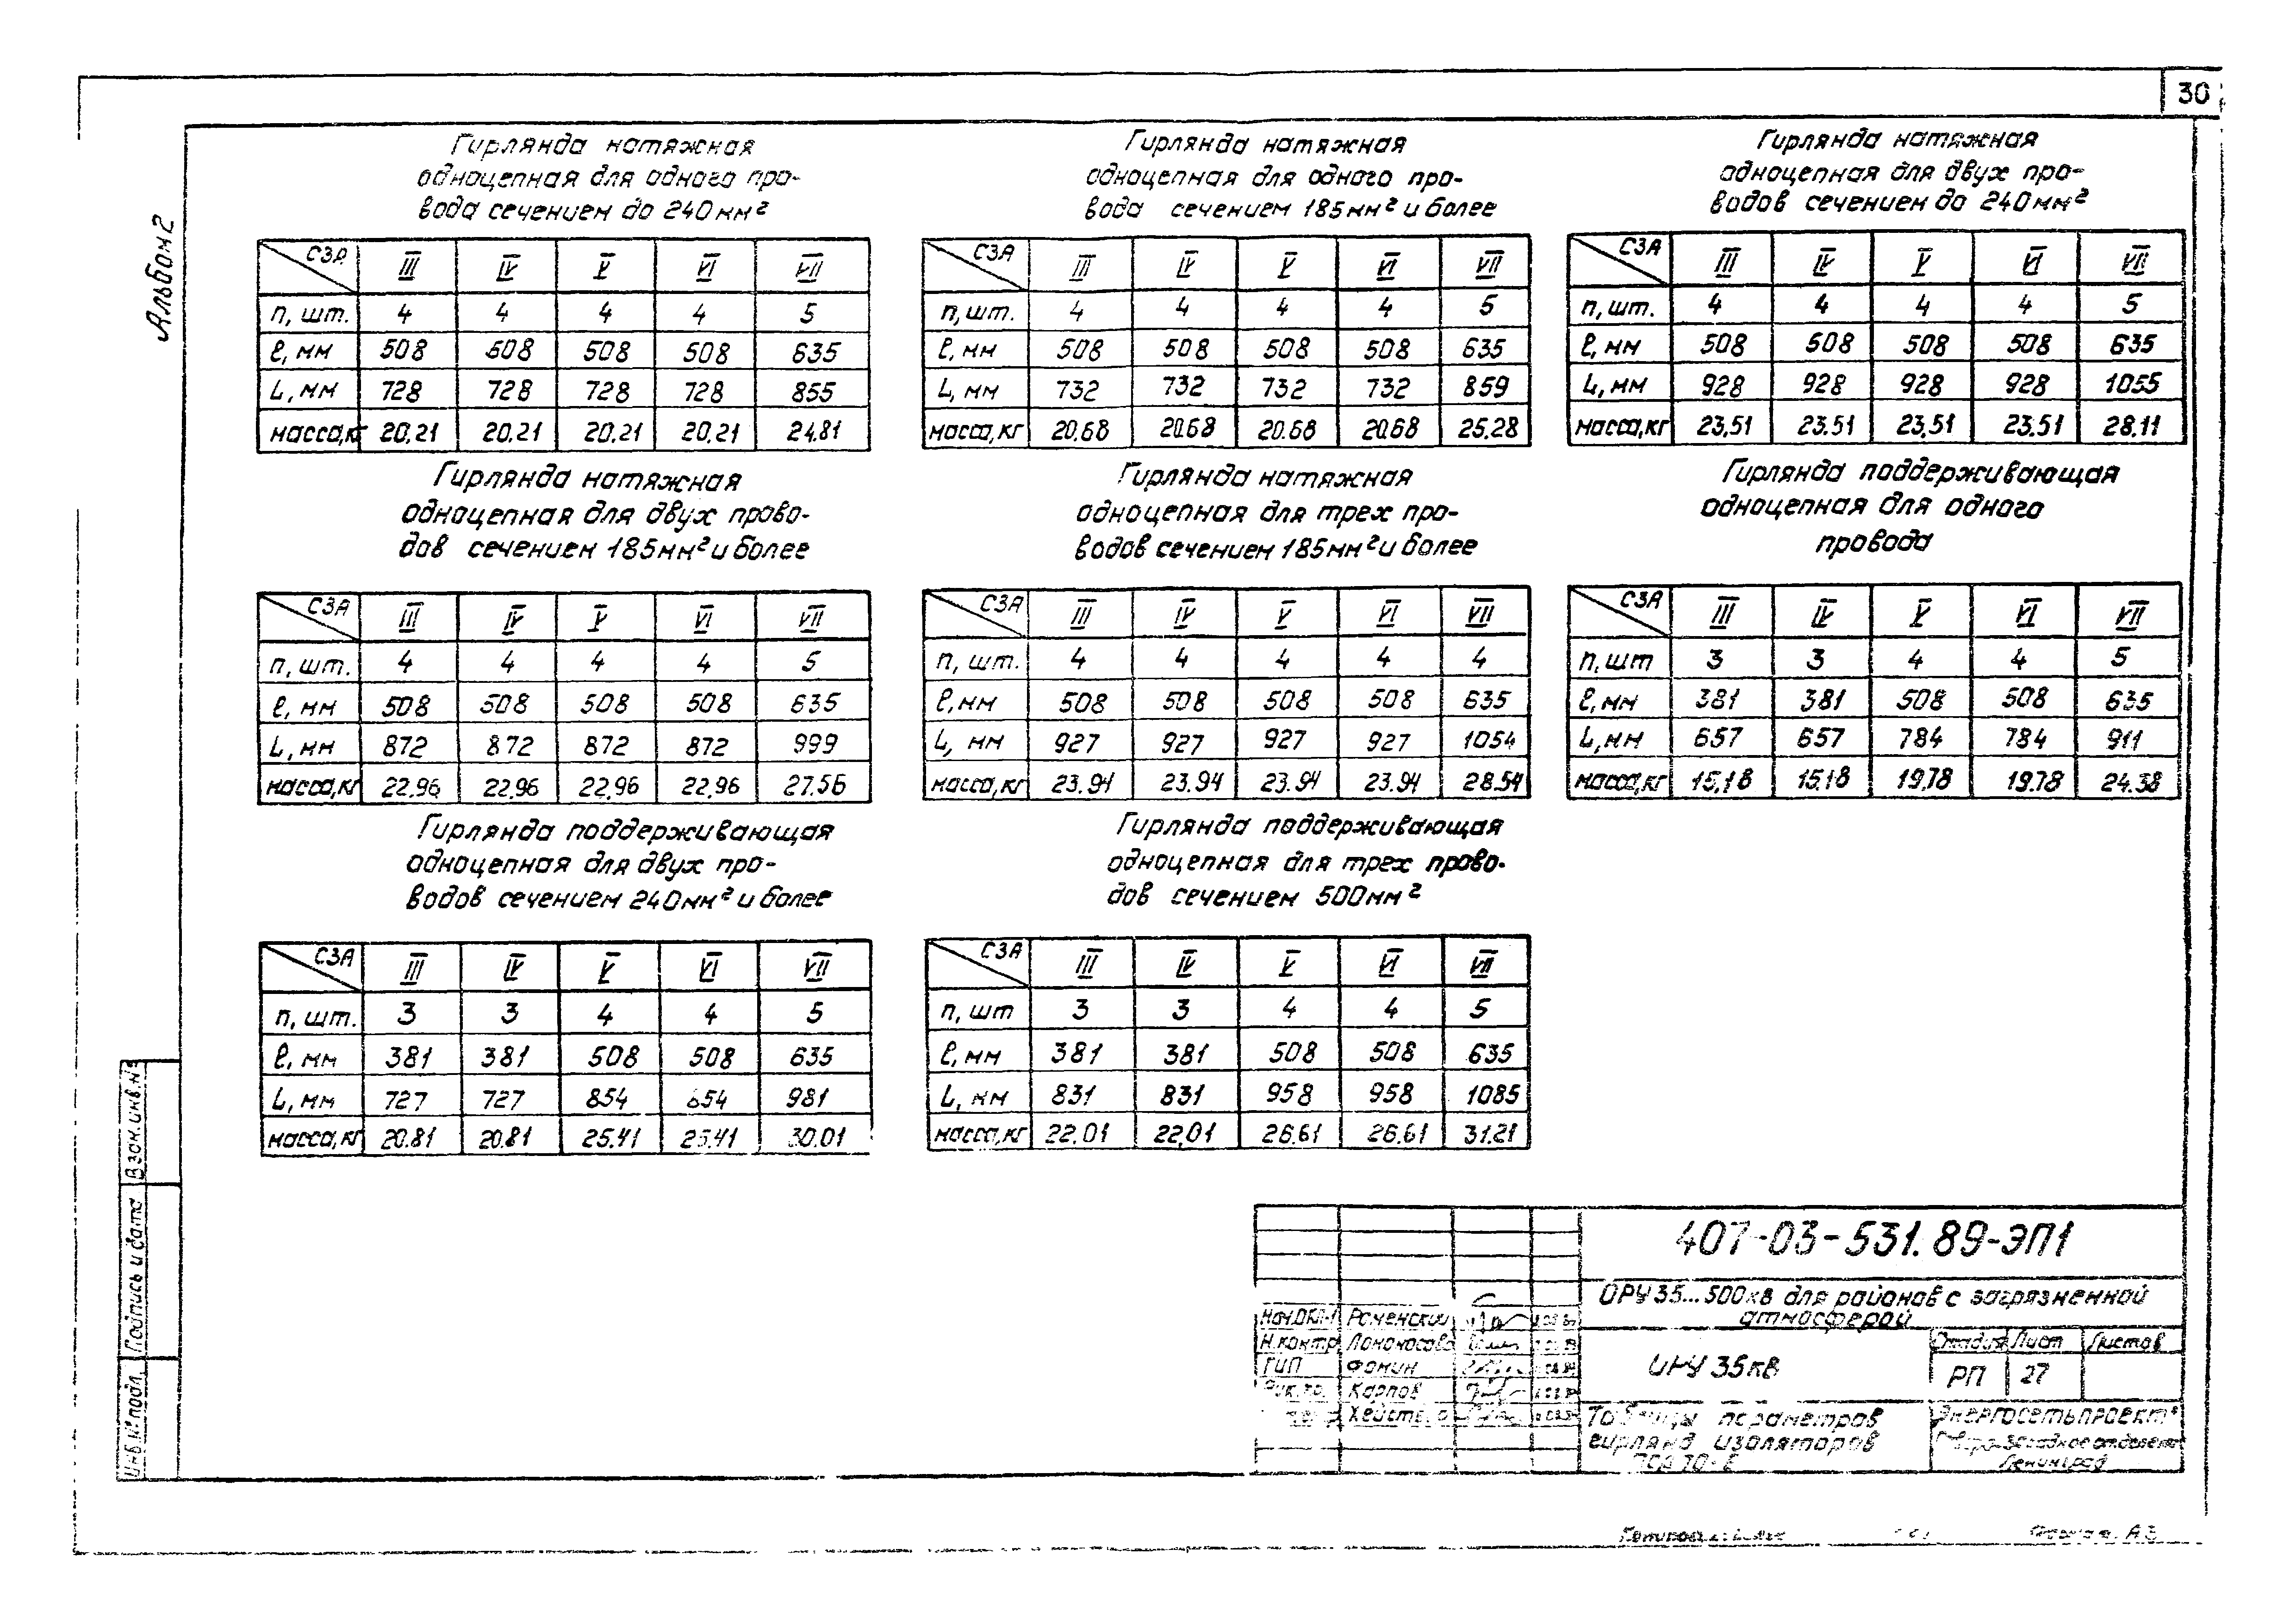 30
Альбом 2
Гирлянда натяжная
одноцепная для одного про-
вода сечением до 240мм²
СЗА III IV V VI VII
n, шт. 4 4 4 4 5
ℓ, мм 508 508 508 508 635
L, мм 728 728 728 728 855
масса,кг 20,21 20.21 20.21 20.21 24.81
Гирлянда натяжная
одноцепная для одного про-
вода сечением 185мм² и более
СЗА III IV V VI VII
n, шт. 4 4 4 4 5
ℓ, мм 508 508 508 508 635
L, мм 732 732 732 732 859
масса,кг 20.68 20.68 20.68 20.68 25.28
Гирлянда натяжная
одноцепная для двух про-
водов сечением до 240мм²
СЗА III IV V VI VII
n, шт. 4 4 4 4 5
ℓ, мм 508 508 508 508 635
L, мм 928 928 928 928 1055
масса,кг 23,51 23.51 23,51 23.51 28.11
Гирлянда натяжная
одноцепная для двух прово-
дов сечением 185мм² и более
СЗА III IV V VI VII
n, шт. 4 4 4 4 5
ℓ, мм 508 508 508 508 635
L, мм 872 872 872 872 999
масса,кг 22.96 22.96 22.96 22.96 27.56
Гирлянда натяжная
одноцепная для трех про-
водов сечением 185мм² и более
СЗА III IV V VI VII
n, шт. 4 4 4 4 4
ℓ, мм 508 508 508 508 635
L, мм 927 927 927 927 1054
масса,кг 23.94 23.94 23.94 23.94 28.54
Гирлянда поддерживающая
одноцепная для одного
провода
СЗА III IV V VI VII
n, шт 3 3 4 4 5
ℓ, мм 381 381 508 508 635
L, мм 657 657 784 784 911
масса,кг 15,18 15.18 19.78 19.78 24.38
Гирлянда поддерживающая
одноцепная для двух про-
водов сечением 240мм² и более
СЗА III IV V VI VII
n, шт. 3 3 4 4 5
ℓ, мм 381 381 508 508 635
L, мм 727 727 854 854 981
масса,кг 20.81 20.81 25.41 25.41 30.01
Гирлянда поддерживающая
одноцепная для трех прово-
дов сечением 500мм²
СЗА III IV V VI VII
n, шт 3 3 4 4 5
ℓ, мм 381 381 508 508 635
L, мм 831 831 958 958 1085
масса,кг 22.01 22.01 26.61 26.61 31.21
Взам. инв. №
Подпись и дата
Инв № подл.
407-03-531.89-ЭП1
ОРУ 35...500кВ для районов с загрязненной
атмосферой
Н.контр Ломоносова
ГИП Фомин
Карпов
ОРУ 35кВ
Стадия Лист Листов
РП 27
Таблицы параметров
гирлянд изоляторов
ПСД 70-Е
Энергосетьпроект
Северо-Западное отделение
Ленинград
Формат А3